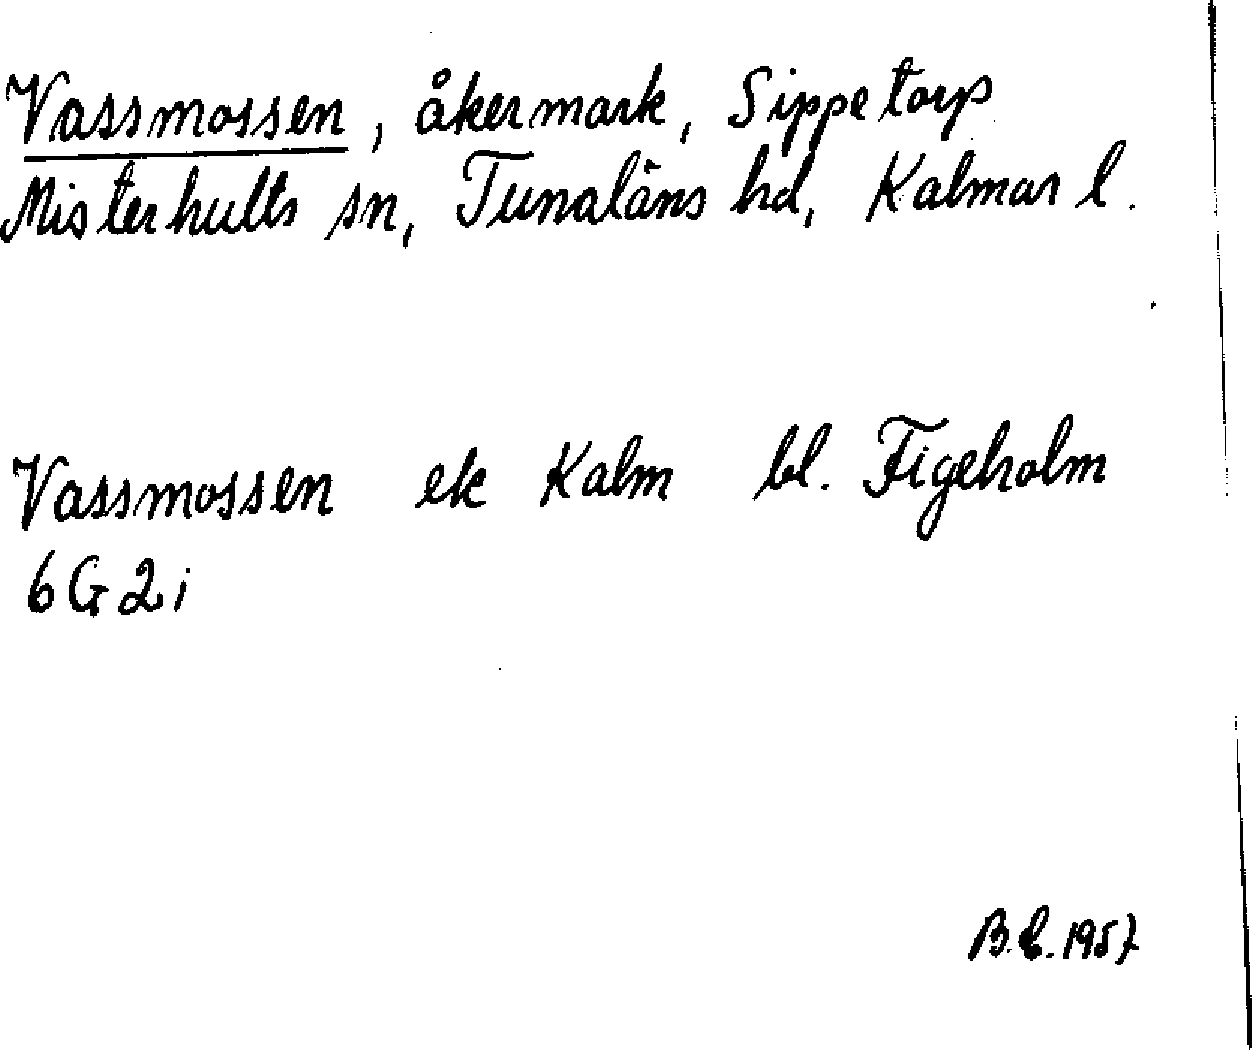 Vassmossen, åkermark, Sippetorp
Misterhults sn, Tunaläns hd, Kalmar l.
Vassmossen ek Kalm bl. Figeholm
6G2i
B.E. 1957